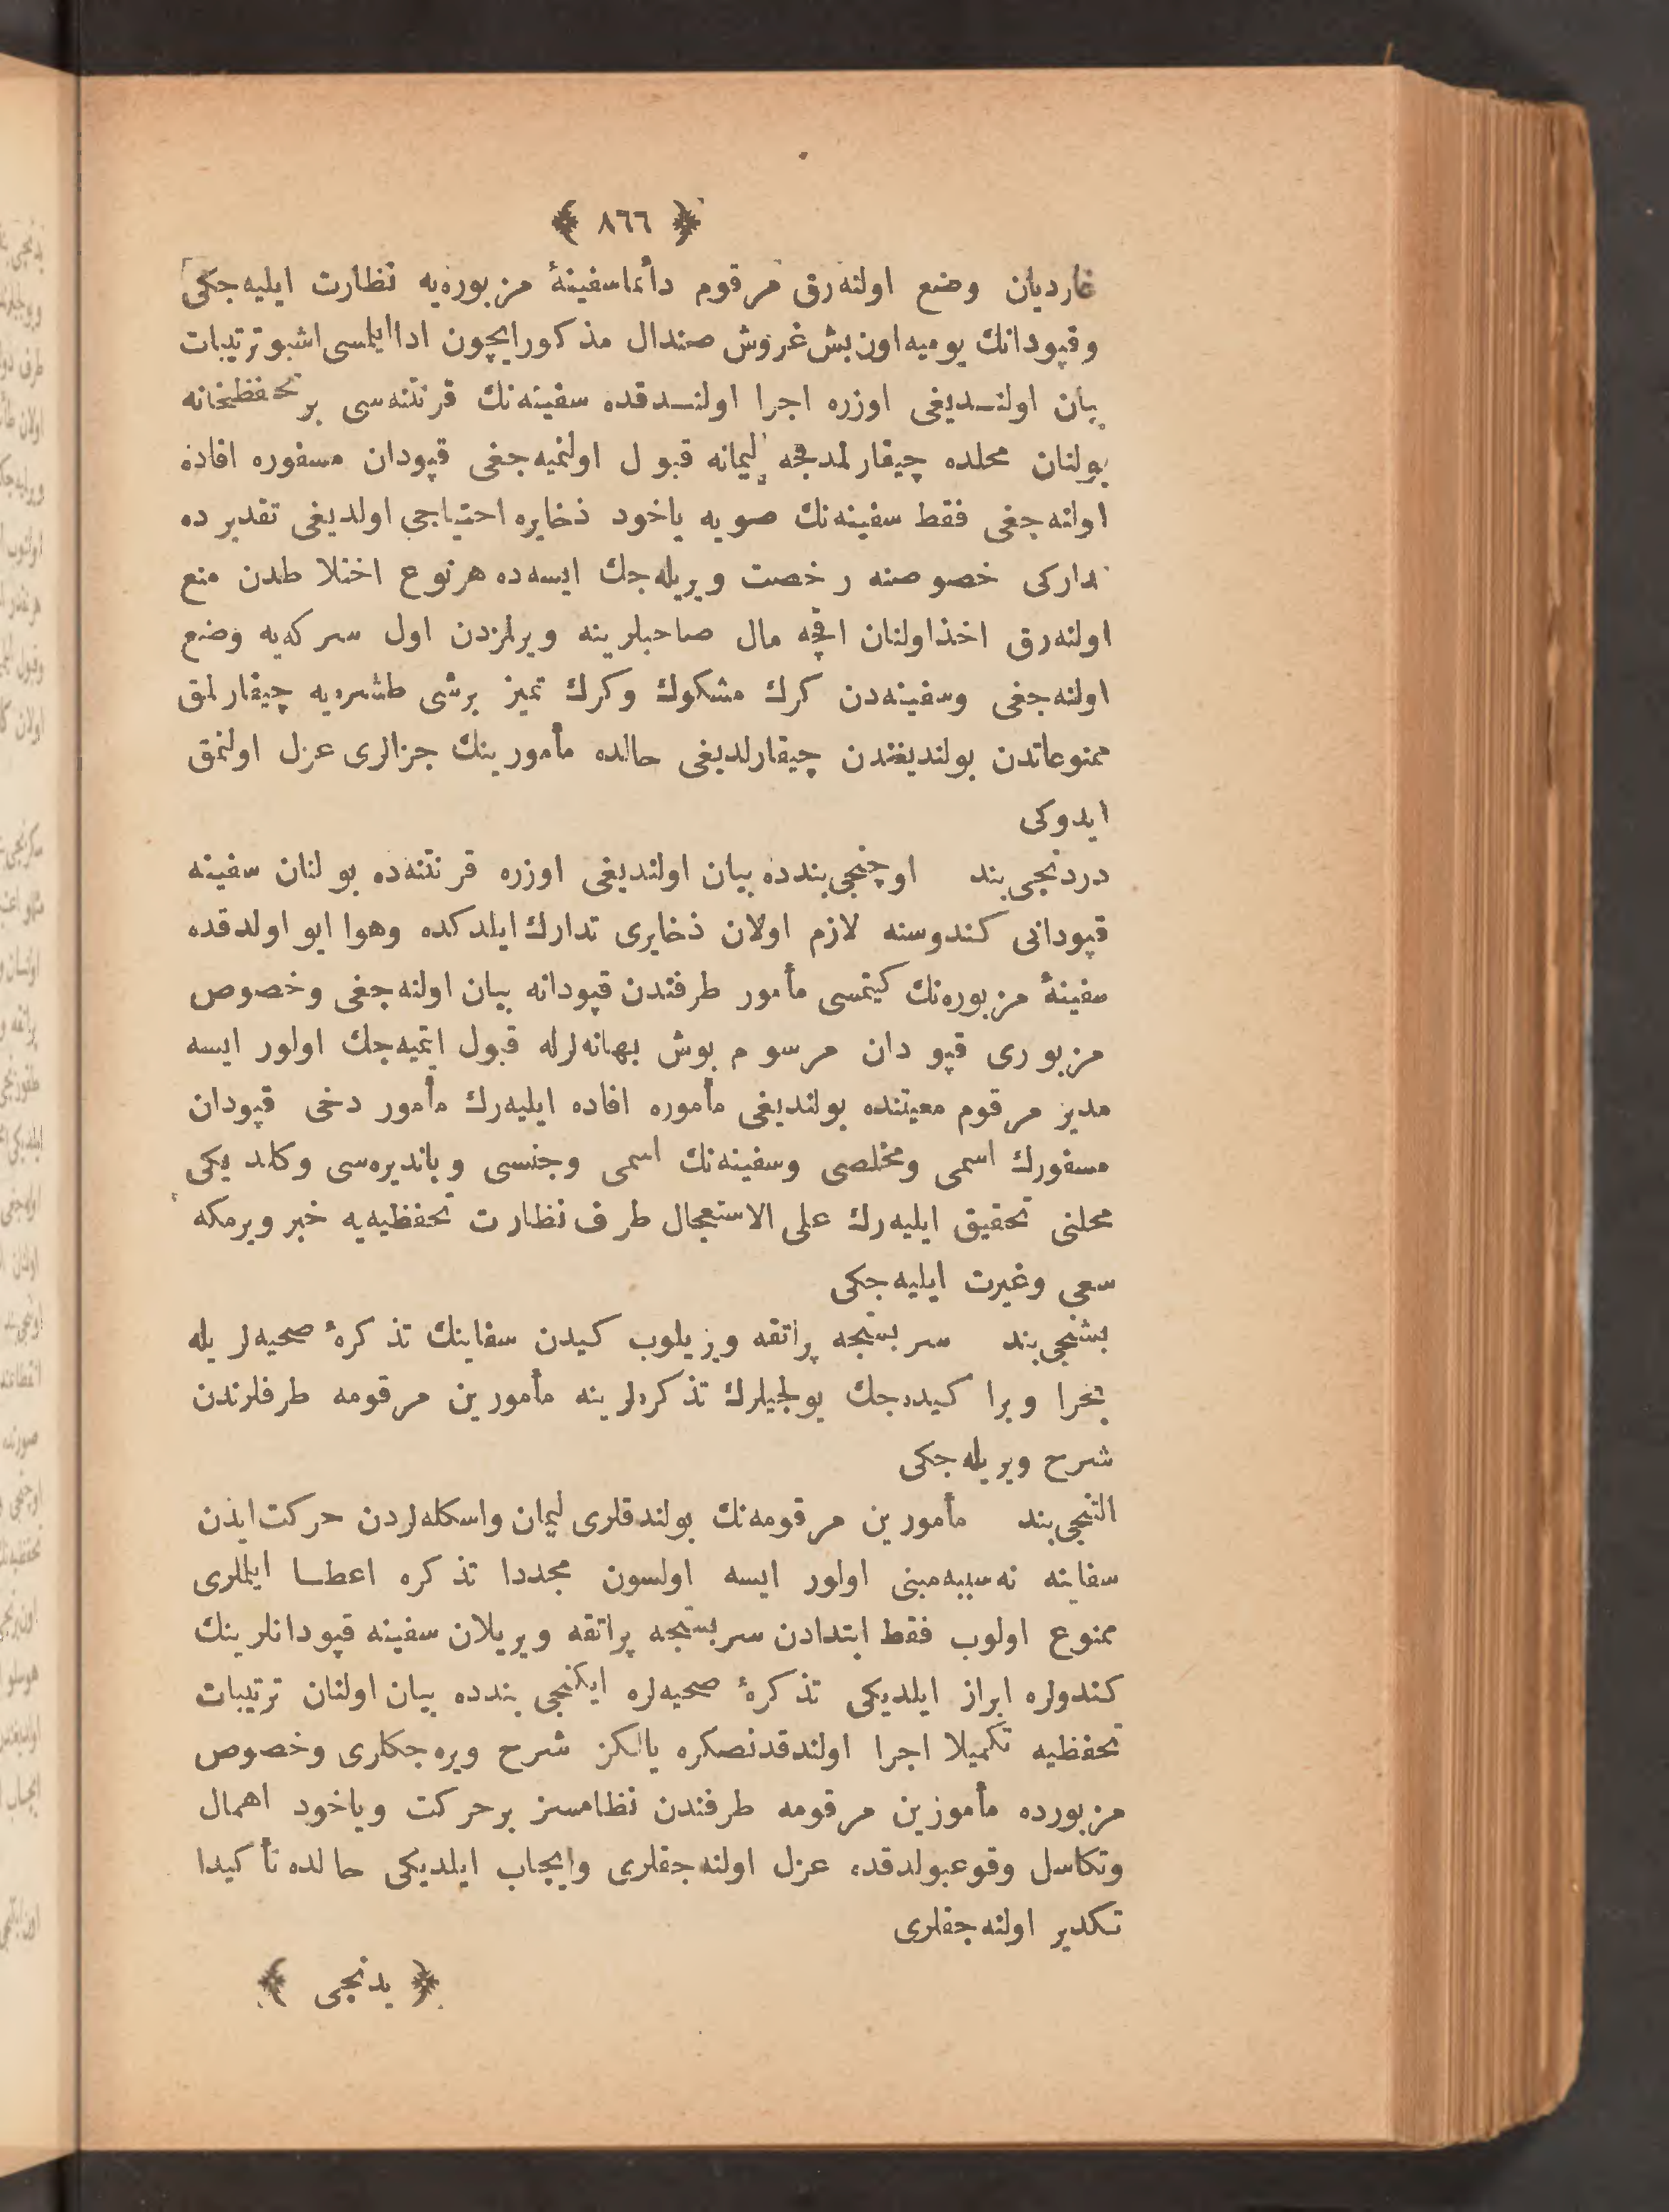 ﴿ ٨٦٦ ﴾
غارديان وضع اولنه‌رق مرقوم دأئما سفينهٔ مزبوره‌يه نظارت ايليه‌جكى
وقپودانك يوميه اون بش غروش صندال مذكور ايچون ادا ايلسى اشبو ترتيبات
بيان اولنـديغى اوزره اجرا اولنـدقده سفينه‌نك قرنتنه‌سى بر تحفظخانه
بولنان محلده چيقارلمدقجه ليمانه قبول اولنميه‌جغى قپودان مسفوره افاده
اولنه‌جغى فقط سفينه‌نك صويه ياخود ذخايره احتياجى اولديغى تقديرده
تداركى خصوصنه رخصت ويريله‌جك ايسه‌ده هر نوع اختلاطدن منع
اولنه‌رق اخذ اولنان اقچه مال صاحبلرينه ويرلمزدن اول سركه‌يه وضع
اولنه‌جغى وسفينه‌دن كرك مشكوك وكرك تميز برشى طشره‌يه چيقارلمق
ممنوعاتدن بولنديغندن چيقارلديغى حالده مأمورينك جزالرى عزل اولنمق
ايدوكى
دردنجى بند اوچنجى بندده بيان اولنديغى اوزره قرنتنه‌ده بولنان سفينه
قپودانى كندوسنه لازم اولان ذخايرى تدارك ايلدكده وهوا ايو اولدقده
سفينهٔ مزبوره‌نك كيتمسى مأمور طرفندن قپودانه بيان اولنه‌جغى وخصوص
مزبورى قپودان مرسوم بوش بهانه‌لرله قبول ايتميه‌جك اولور ايسه
مدير مرقوم معيتنده بولنديغى مأموره افاده ايليه‌رك مأمور دخى قپودان
مسفورك اسمى ومخلصى وسفينه‌نك اسمى وجنسى وبانديره‌سى وكلديكى
محلنى تحقيق ايليه‌رك على الاستعجال طرف نظارت تحفظيه‌يه خبر ويرمكه
سعى وغيرت ايليه‌جكى
بشنجى بند سربستجه پراتقه ويريلوب كيدن سفاينك تذكرهٔ صحيه‌لريله
بحرا وبرا كيده‌جك يولجيلرك تذكره‌لرينه مأمورين مرقومه طرفلرندن
شرح ويريله‌جكى
التنجى بند مأمورين مرقومه‌نك بولندقلرى ليمان واسكله‌لردن حركت ايدن
سفاينه نه سببه مبنى اولور ايسه اولسون مجددا تذكره اعطـا ايلملرى
ممنوع اولوب فقط ابتدادن سربستجه پراتقه ويريلان سفينه قپودانلرينك
كندولره ابراز ايلديكى تذكرهٔ صحيه‌لره ايكنجى بندده بيان اولنان ترتيبات
تحفظيه تكميلا اجرا اولندقدنصكره يالكز شرح ويره‌جكلرى وخصوص
مزبورده مأمورين مرقومه طرفندن نظامسز برحركت وياخود اهمال
وتكاسل وقوعبولدقده عزل اولنه‌جقلرى وايجاب ايلديكى حالده تأكيدا
تكدير اولنه‌جقلرى
﴿ يدنجى ﴾